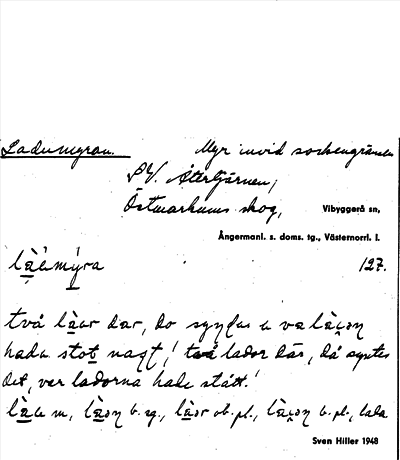 Ladumyran. Myr invid sockengränsen
SV. Återtjärnen,
Östmarkums skog, Vibyggerå sn,
Ångermanl. s. doms. tg., Västernorrl. l.
127.
två làar dar, do syndes e va
hada stot nagt,! två lador där, då syntes
det, var ladorna hade stått.!
m, b. sg., ob. pl., b. pl., lada
Sven Hiller 1948